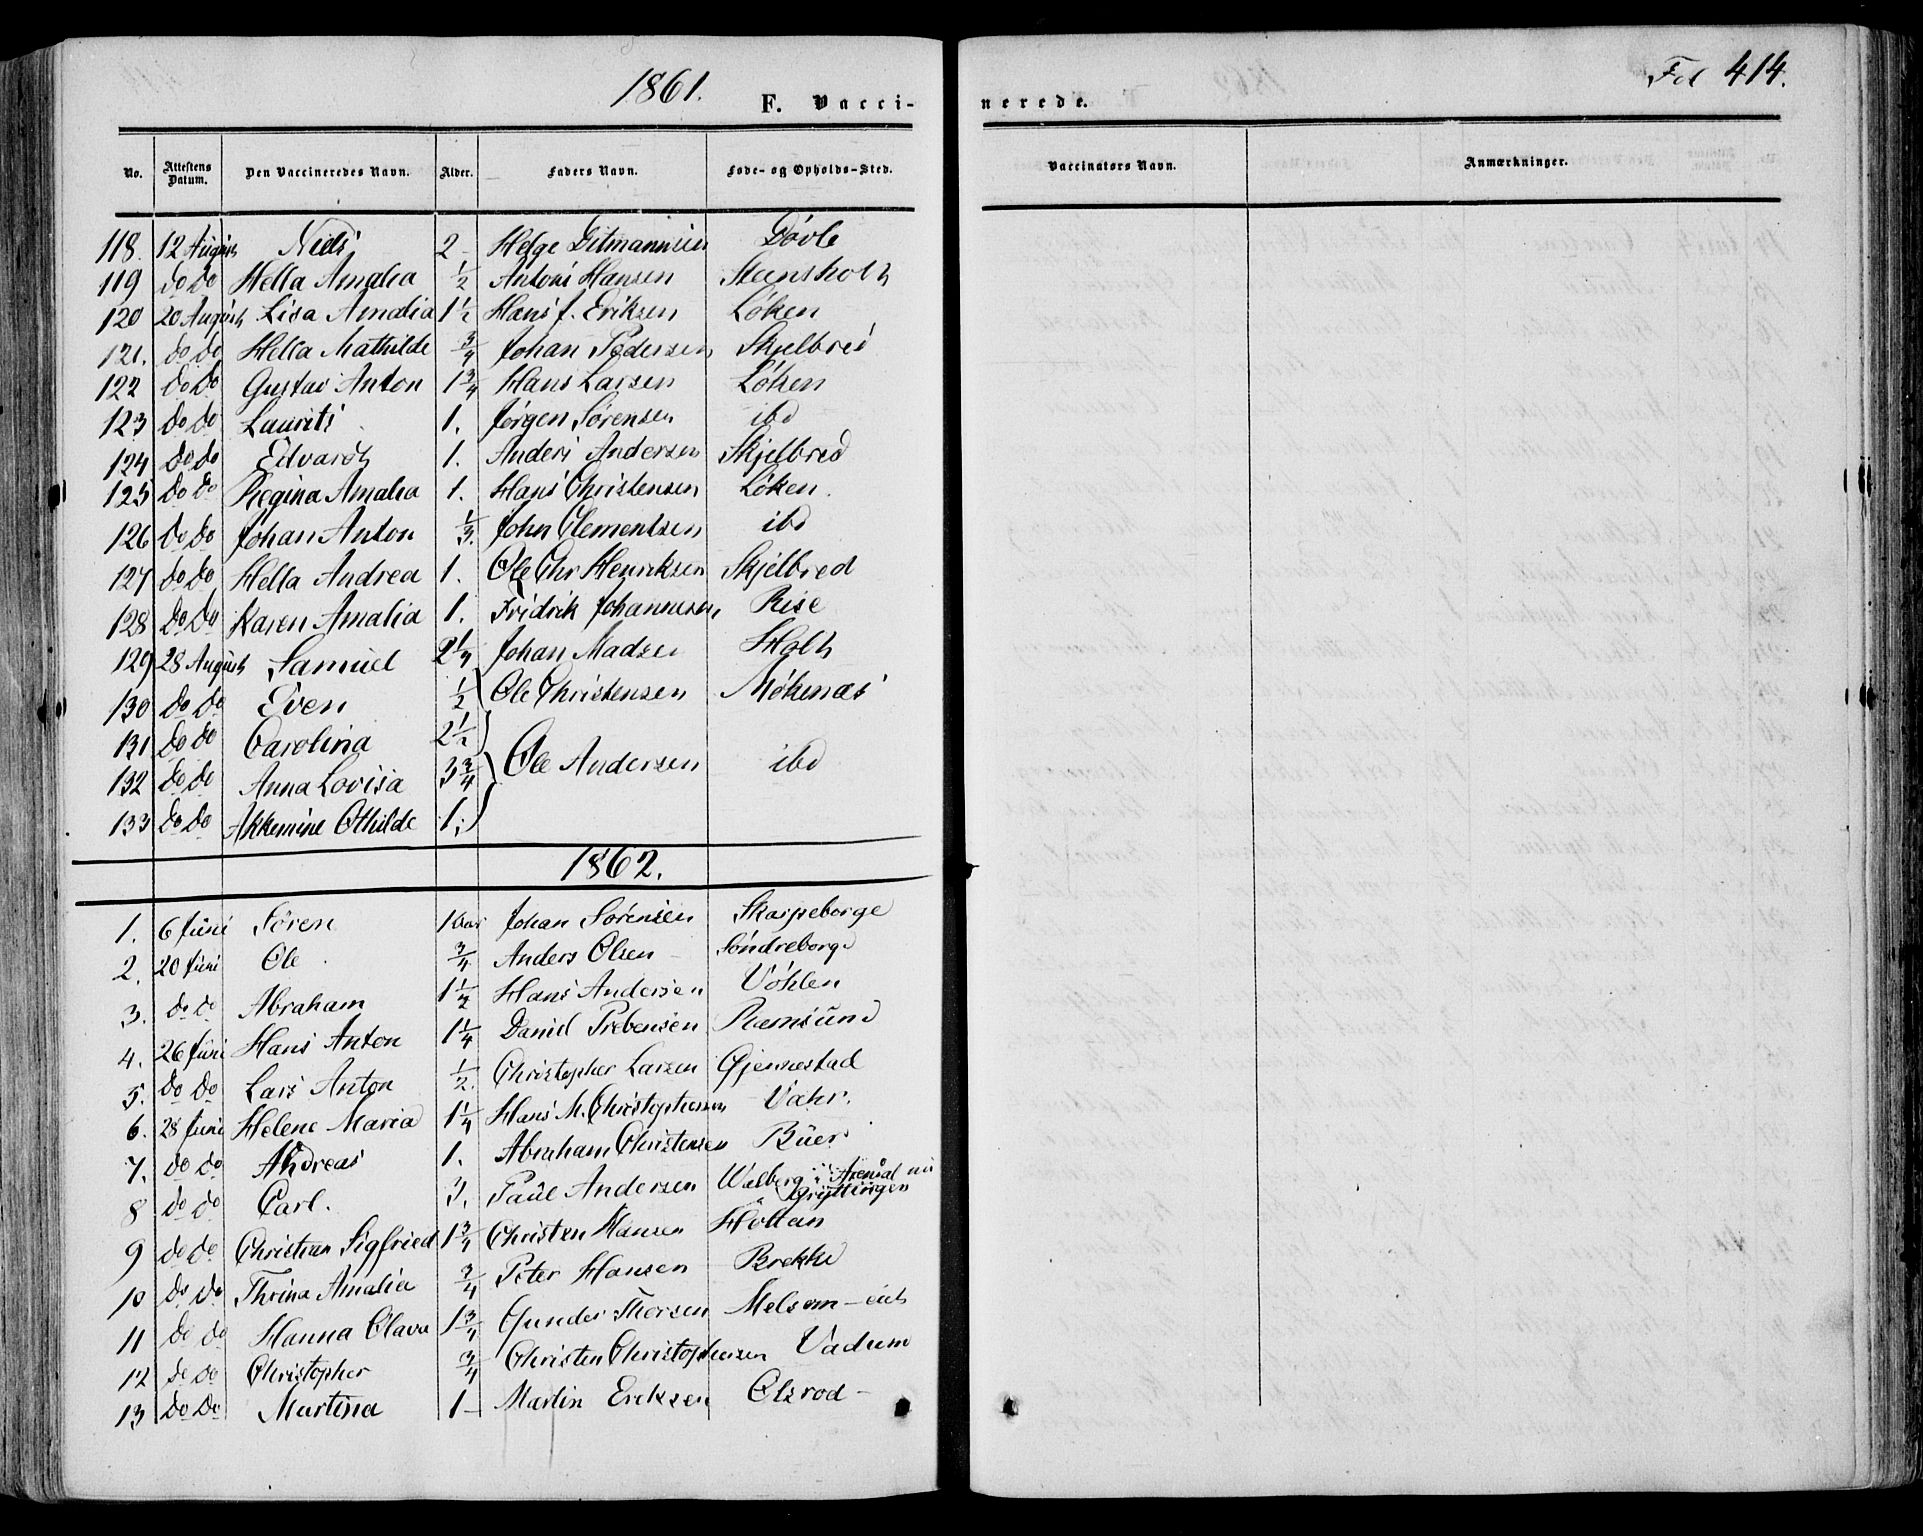 1861.
F. Vacci-
nerede.
Fol 414.
No. Attestens Datum. Den Vaccineredes Navn. Alder. Faders Navn. Føde- og Opholds-Sted. Vaccinators Navn. Anmærkninger.
118. 12 August Niels 2 - Helge Ditmannsen Døvle
119 do do Hella Amalia 1/2 Antoni Hansen Steensholt
120 20 August Lisa Amalia 1 1/2 Hans J. Eriksen Løken
121. do do Hella Mathilde 3/4 Johan Pedersen Skjelbred
122 do do Gustav Anton 1 3/4 Hans Larsen Løken
123 do do Laurits 1. Jørgen Sørensen ibd
124 do do Edvardt 1. Anders Andersen Skjelbred
125 do do Regina Amalia 1. Hans Christensen Løken.
126 do do Johan Anton 1/3. John Clementsen ibd
127 do do Hella Andrea 1. Ole Chr Henriksen Skjelbred
128 do do Karen Amalia 1. Fridrik Johannesen Rise
129 28 August Samuel 2 1/2 Johan Madsen Holt
130 do do Even 1/2 Ole Christensen Møkenæs
131 do do Carolina 2 1/2
132 do do Anna Lovisa 3 3/4 Ole Andersen ibd
133 do do Akkemine Othilde 1.
1862.
1. 6 Juni Søren 1 Aar Johan Sørensen Skarpeborge
2. 20 Juni Ole 3/4 Anders Olsen - Søndreborge
3. do do Abraham 1 1/2 Hans Andersen Vøhlen
4. 26 Juni Hans Anton 1 1/4 Daniel Prebensen Ramsund
5. do do Lars Anton 1/2. Christopher Larsen Gjennestad
6. 28 Juni Helene Maria 1 1/4 Hans M. Christophersen Væhr.
7. do do Andreas 1. Abraham Christensen Buer
8 do do Carl. 3. Paul Andersen Walberg i Arendal nu Gryttingen
9 do do Christian Sigfried 1 3/4 Christen Hansen Høttan
10 do do Thrina Amalia 3/4 Peter Hansen Brekke
11 do do Hanna Olava 1 3/4 Gunder Thorsen Melsom - eiet
12 do do Christopher 3/4 Christen Christophersen Vadum
13 do do Martina 1 - Martin Ericksen Olsrod -